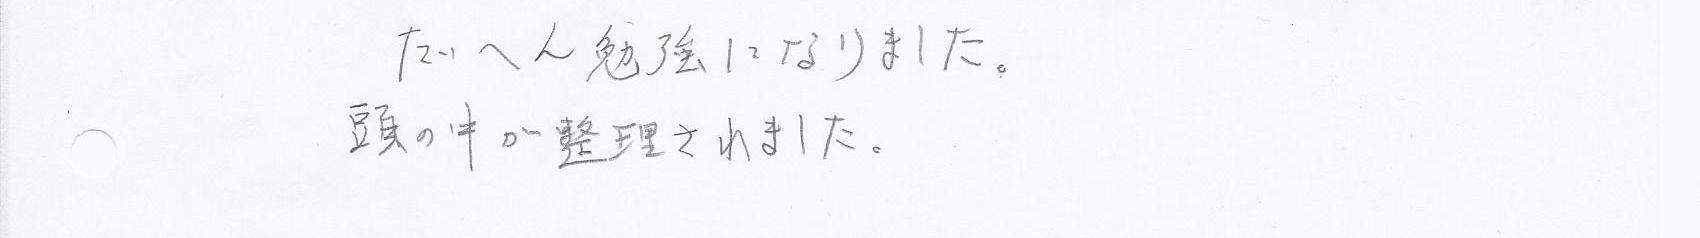 たいへん勉強になりました。
頭の中が整理されました。